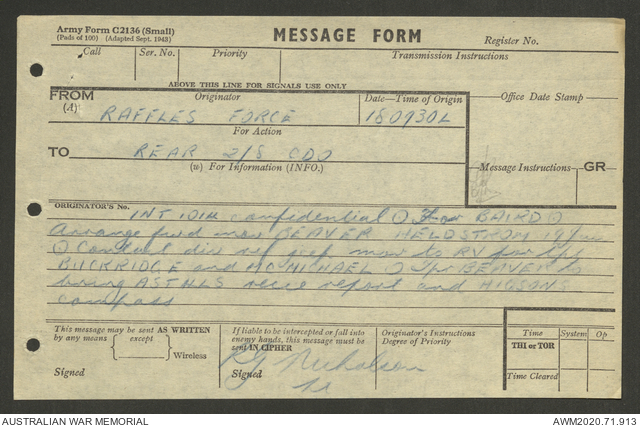 Army Form C2136 (Small)
(Pads of 100) (Adapted Sept. 1943)
MESSAGE FORM
Register No.
Call Ser. No. Priority Transmission Instructions
ABOVE THIS LINE FOR SIGNALS USE ONLY
FROM
(A)
Originator
Date—Time of Origin
Office Date Stamp
RAFFLES FORCE 180930L
For Action
TO
REAR 2/8 CDO
(w) For Information (INFO.)
Message Instructions GR
ORIGINATOR'S No.
INT confidential O For BAIRD O
Arrange fwd mov BEAVER HELDSTROM
O Contact div ref mov to RV for
BUCKRIDGE and McMICHAEL O BEAVER to
bring recce report and HIGSONS
compass
This message may be sent AS WRITTEN
by any means except
Wireless
Signed
If liable to be intercepted or fall into
enemy hands, this message must be
sent IN CIPHER
Signed
Nicholson
Originator's Instructions
Degree of Priority
Time System Op
THI or TOR
Time Cleared
AUSTRALIAN WAR MEMORIAL
AWM2020.71.913